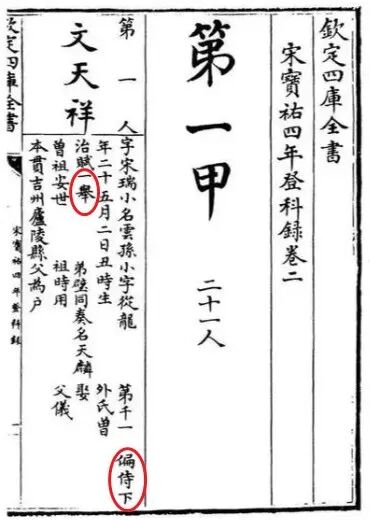 欽定四庫全書
宋寶祐四年登科録卷二
第一甲 二十一人
第一人
文天祥
字宋瑞小名雲孫小字從龍 第千一 偏侍下
年二十五月二日丑時生 外氏曾
治賦一舉 弟璧同奏名天麟 娶
曾祖安世 祖時用 父儀
本貫吉州廬陵縣父為户
欽定四庫全書
宋寶祐四年登科録